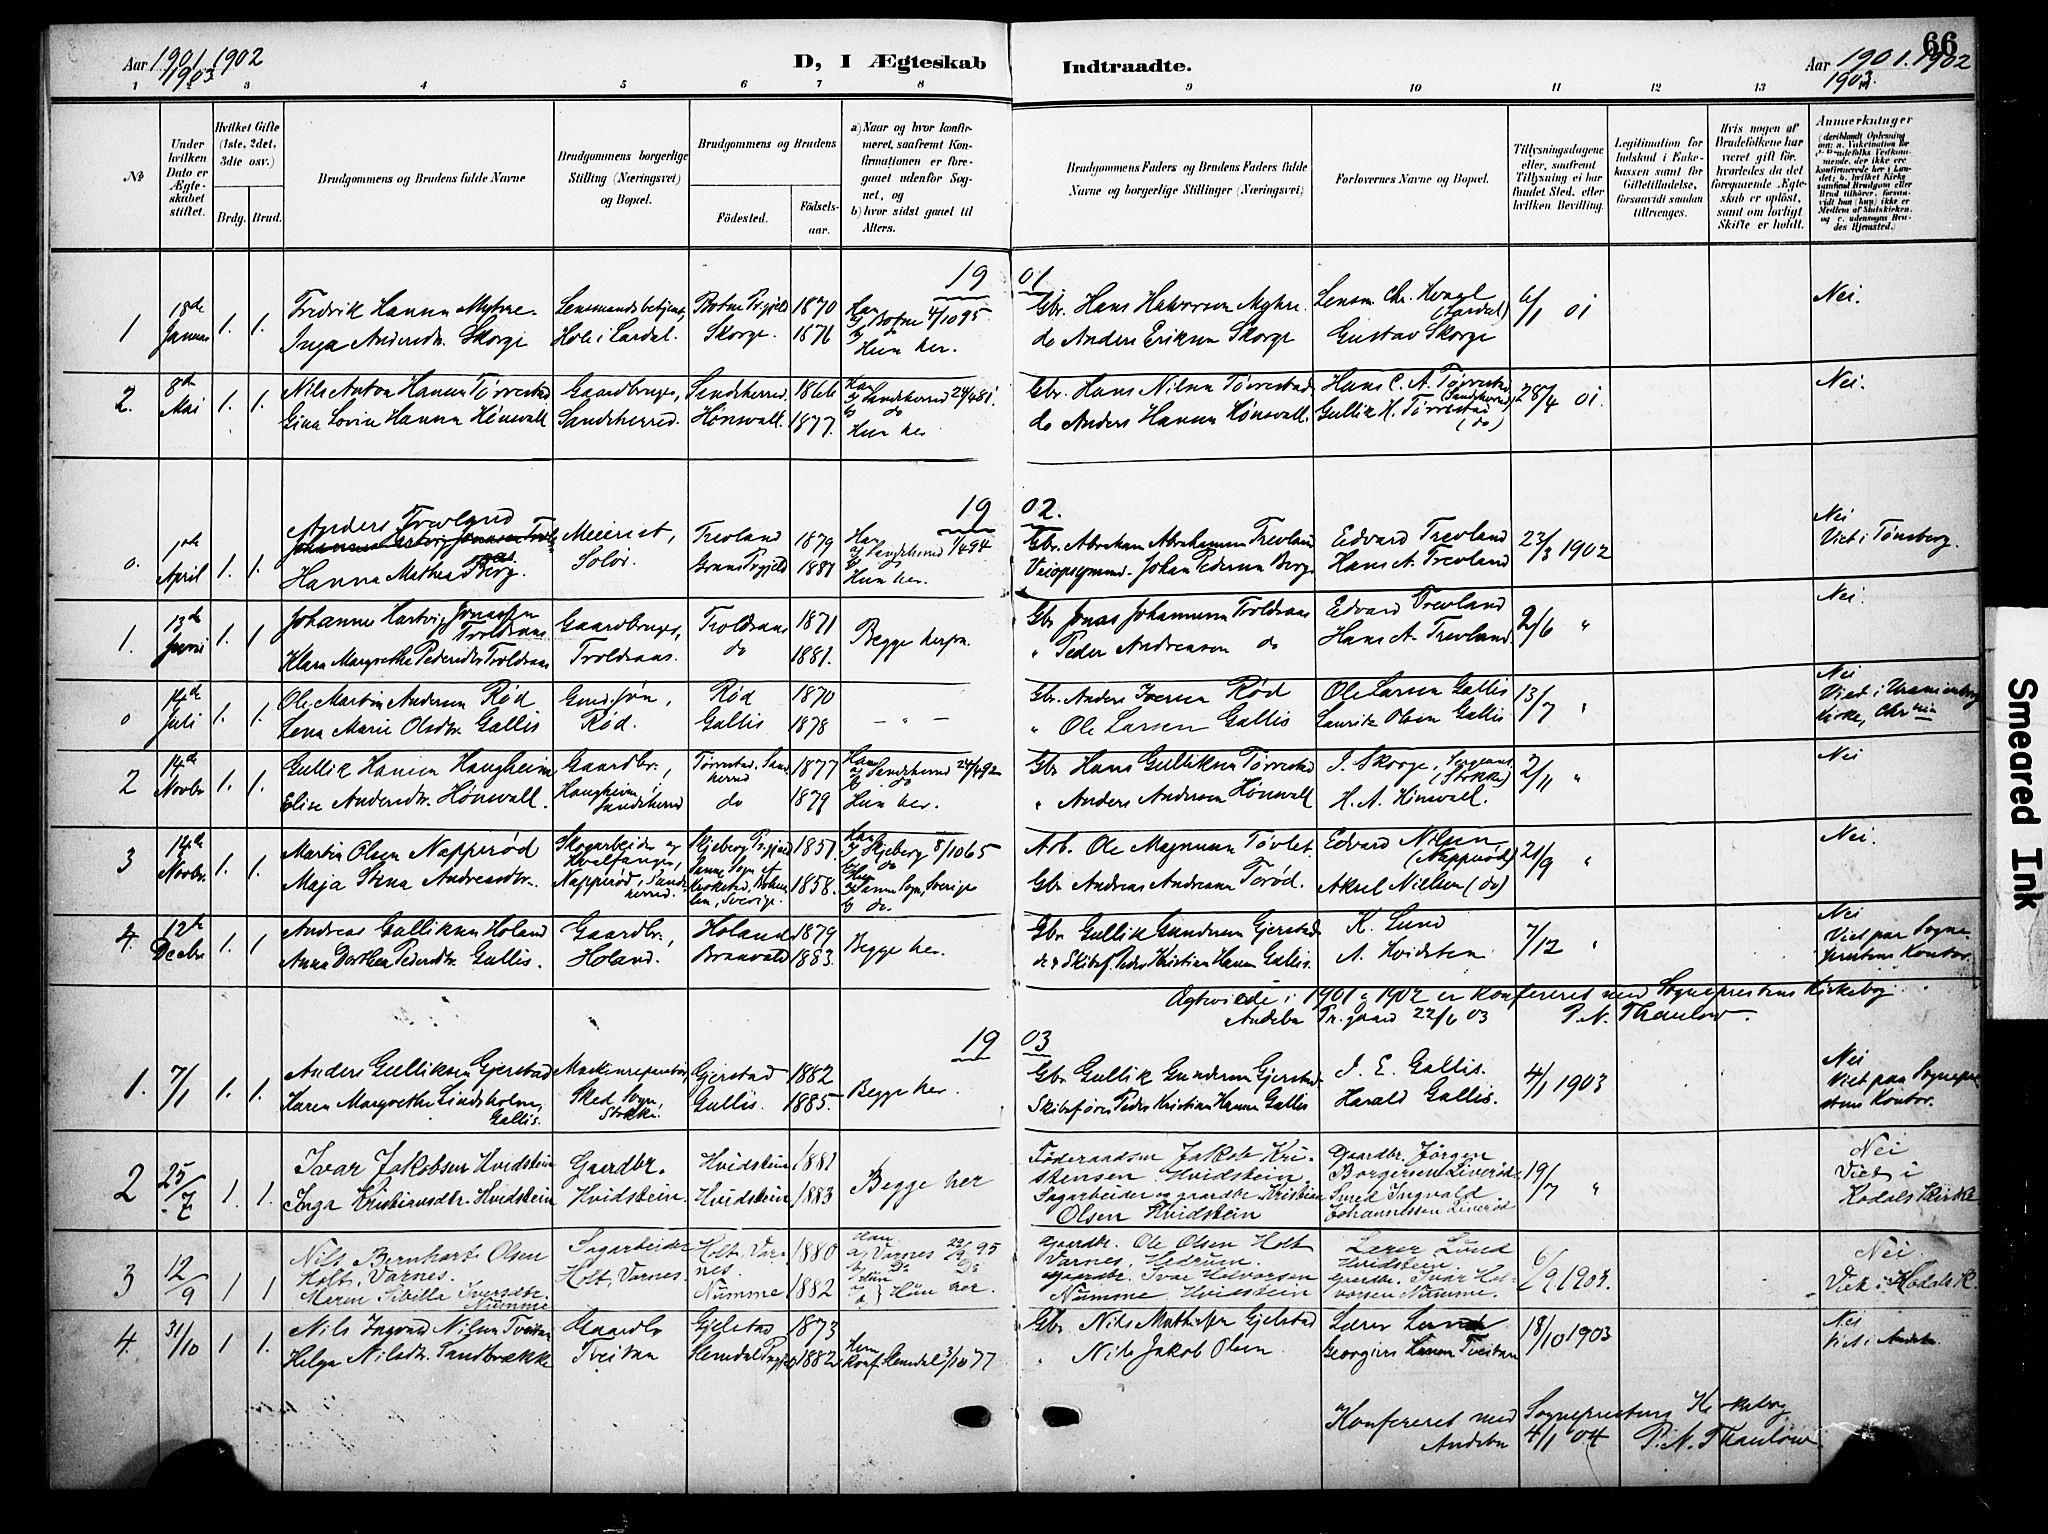 66
Aar 1901 1902
1903
D, I Ægteskab Indtraadte.
Aar 1901. 1902
1903.
1 2 3 4 5 6 7 8 9 10 11 12 13 14
№
Under hvilken Dato er Ægteskabet stiftet.
Hvilket Gifte (1ste, 2det, 3die osv.)
Brdg. Brud.
Brudgommens og Brudens fulde Navne
Brudgommens borgerlige Stilling (Næringsvei) og Bopæl.
Brudgommens og Brudens
Fødested. Fødselsaar.
a) Naar og hvor konfirmeret, saafremt Konfirmationen er foregaaet udenfor Sognet, og
b) hvor sidst gaaet til Alters.
Brudgommens Faders og Brudens Faders fulde Navne og borgerlige Stillinger (Næringsvei)
Forlovernes Navne og Bopæl.
Tillysningsdagene eller, saafremt Tillysning ei har fundet Sted, efter hvilken Bevilling.
Legitimation for Indskud i Enkekassen samt for Giftetilladelse, forsaavidt saadan tiltrænges.
Hvis nogen af Brudefolkene har været gift før, hvorledes da det foregaaende Ægteskab er opløst, samt om lovligt Skifte er holdt.
Anmerkninger
19 01.
1 18de Januar 1. 1. Fredrik Hansen Myhre Lensmandsbetjent, Botne Prgjeld 1870 Han a) Botne 4/10 95 Gbr. Hans Halvorsen Myhre. Lensm. Chr. Hvaal (Lardal) 6/1 01 Nei.
Inga Andersdtr. Skorge Hole i Lardal. Skorge. 1871 b) do Hun her. do Anders Eriksen Skorge Gustav Skorge
2. 8de Mai 1. 1. Nils Anton Hansen Tørrestad Gaardbruger, Sandeherred 1866 Han a) Sandeherred 24/4 81. Gbr. Hans Nilsen Tørrestad Hans C. A. Tørrestad (Sandeherred) 28/4 01. Nei.
Gina Lovise Hansen Hønsvall Sandeherred. Hønsvall. 1877. b) do Hun her do Anders Hansen Hønsvall. Gullik H. Tørrestad (do)
19 02.
0. 1ste April 1. 1. Anders Trevland Meierist, Trevland 1879 Han a) Sandeherred 1/4 94 Gbr. Abraham Abrahamsen Trevland Edvard Trevland 23/3 1902 Nei Viet i Tønsberg.
Hanna Mathea Berg. Solør. Grans Prgjeld 1881 b) do Hun her. Veiopsynsmd. Johan Pedersen Berg Hans A. Trevland
1. 13de Juni 1. 1 Johannes Hartvig Jonassen Troldsaas Gaardbruger, Troldsaas 1871 Begge herfra. Gbr Jonas Johannesen Troldsaas Edvard Trevland 2/6 " Nei.
Klara Margrethe Pedersdtr Troldsaas Troldsaas. do 1881. " Peder Andreasen do Hans A. Trevland
0 14de Juli 1. 1. Ole Martin Andersen Rød Gmd. søn, Rød 1870 — " — Gbr. Anders Iversen Rød Ole Larsen Gallis 13/7 " Nei Viet i Uranienborg Kirke, Chrnia
Lena Marie Olsdtr. Gallis Rød. Gallis 1878 " Ole Larsen Gallis Lauritz Olsen Gallis
2 14de Novbr 1. 1. Gullik Hansen Haugheim Gaardbr., Tørrestad, Sandeherred 1877 Han a) Sandeherred 24/4 92 Gbr Hans Gulliksen Tørrestad J. Skorge, Sergeant, (Stokke) 2/11 " Nei
Elise Andersdtr. Hønsvall. Haugheim, Sandeherred do 1879 b) do Hun her. " Anders Andersen Hønsvall H. A. Hønsvall.
3 14de Novbr. 1. 1. Martin Olsen Napperød Skogarbeider og Hvalfanger, Skjeberg Prgjeld 1851. Han a) Skjeberg 8/10 65 Arb. Ole Magnusen Tøvlet. Edvard Nilsen (Napperød) 21/9 " Nei.
Maja Stina Andreasdtr. Napperød, Sandeherred. Sanne Sogn, Sverige. 1858. b) do Hun a) Sanne Sogn, Sverige b) do. Gbr. Andreas Andreasen Torød. Aksel Nielsen (do)
4. 12te Decbr. 1. 1 Andreas Gulliksen Høland Gaardbr., Høland 1879 Begge her. Gbr Gullik Gundersen Gjerstad K. Lund 7/12 " Nei Viet paa Sogneprestens Kontor.
Anna Dorthea Pedersdtr. Gallis. Høland. Bransvald 1883. Skibsf. Peder Kristian Hansen Gallis. A. Hvidsten
Ægteviede i 1901 o 1902 er konfereret med Sogneprestens Kirkebog
Andebu Pr.gaard 22/6 03 P. N. Thaulow.
19 03
1. 7/1 1. 1. Anders Gulliksen Gjerstad Maskinreparatør, Gjerstad 1882 Begge her. Gbr Gullik Gundersen Gjerstad J. E. Gallis. 4/1 1903 Nei Viet paa Sogneprestens Kontor.
Karen Margrethe Lindsholm, Gallis. Skee Sogn, Stokke. Gallis. 1885. Skibsfører Peder Kristian Hansen Gallis Harald Gallis.
2 25/7 1. 1. Ivar Jakobsen Hvidstein Gaardbr. Hvidstein 1881 Begge her Føderaadsm Jakob Kristensen Hvidstein Gaardbr. Jørgen Borgersen Liverød 19/7 " Nei Viet i Kodals Kirke
Inga Kristiansdtr. Hvidstein Hvidstein. Hvidstein 1883 Sagarbeider og gaardbr Kristian Olsen Hvidstein Smed Ingvald Johannessen Liverød
3 12/9 1 1 Nils Bernhart Olsen Holt, Varnes. Sagarbeider Holt, Varnes. 1880 Han a) Varnes 22/9 95 b) Do Gaardbr. Ole Olsen Holt Varnes, Hedrum. Lærer Lund Hvidstein. 6/9 1903. Nei. Viet i Kodals K.
Maren Sibilla Iversdtr. Numme Holt, Varnes. Numme 1882 Hun a) b) } Hun her. Gaardbr. Ivar Halvorsen Numme, Hvidstein Gaardbr. Ivar Halvorsen Numme.
4. 31/10 1 1. Nils Ingvald Nilsen Tveitan Gaardbr Gjelstad 1873 Gbr. Nils Mathisen Gjelstad Lærer Lund 18/10 1903 Nei Viet i Andebu
Helga Nilsdtr. Sandbrække Tveitan Slemdal Prgjeld 1882 Hun konf. Slemdal 3/10 77 " Nils Jakob Olsen Georgius Hansen Tveitan
Konfereret med Sogneprestens Kirkebog
Andebu 4/1 04 P. N. Thaulow
Smeared Ink